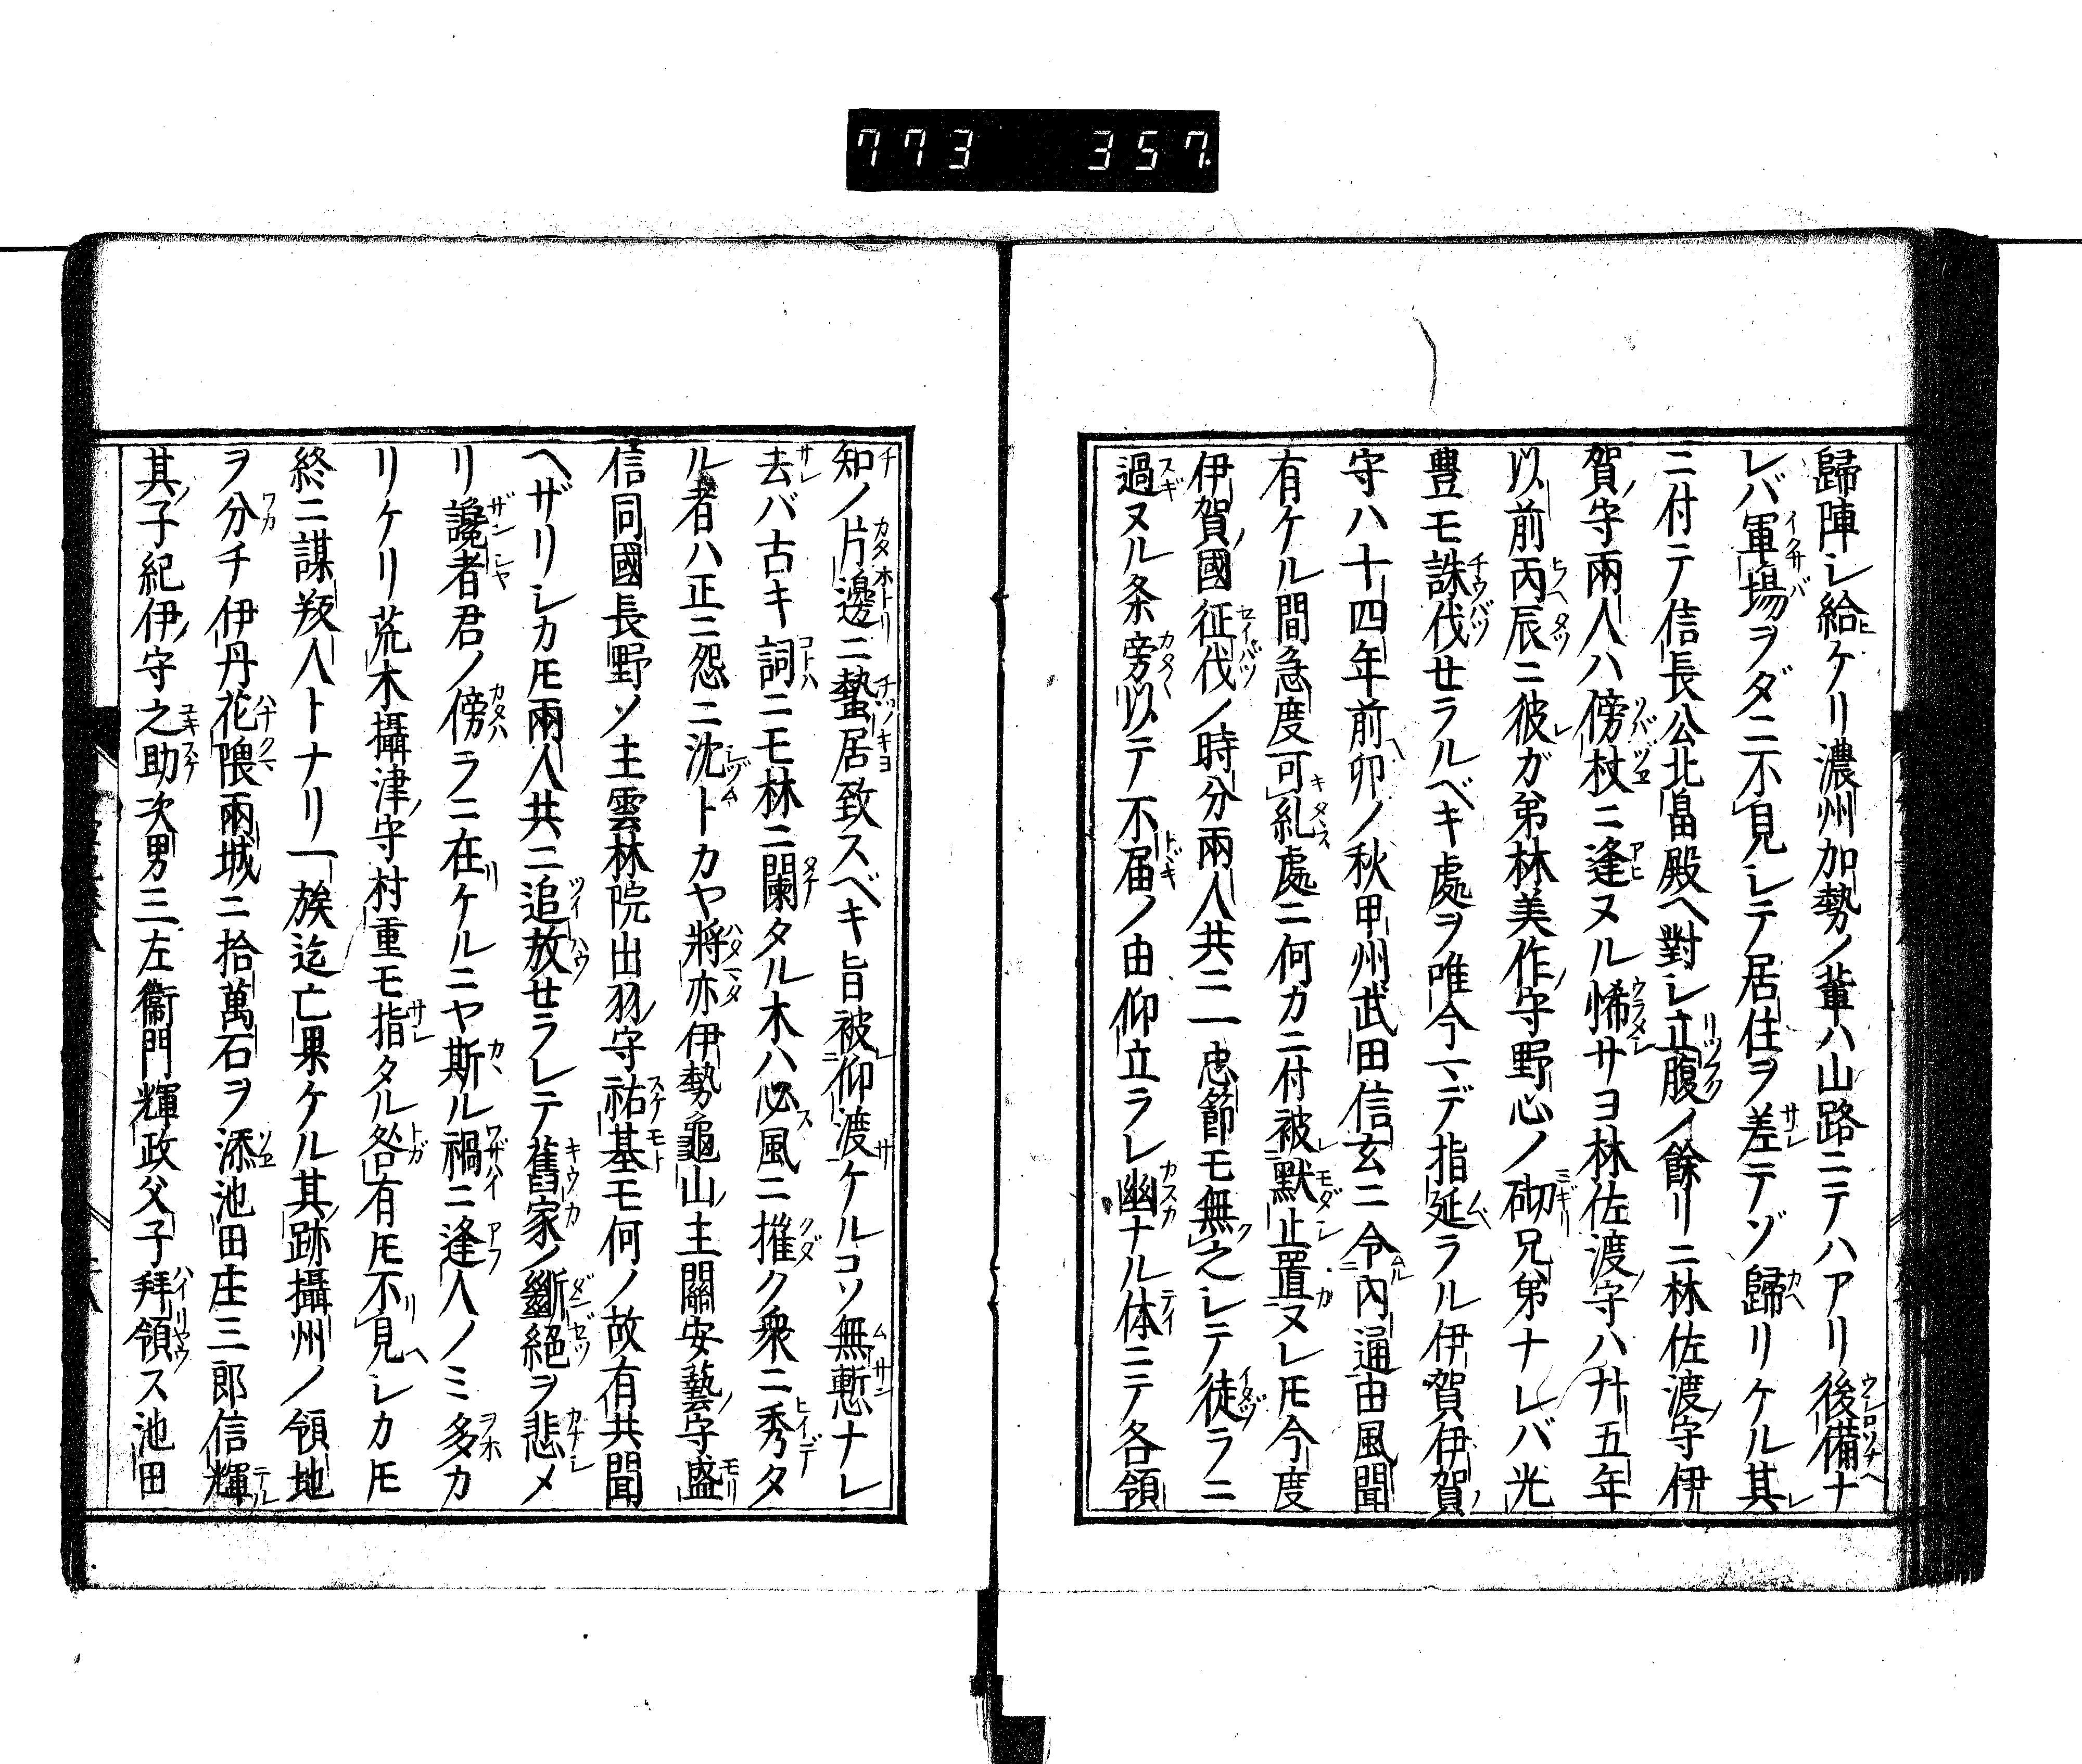 773 357
歸陣シ給ケリ濃州加勢ノ輩ハ山路ニテハアリ後備ナ
レバ軍場ヲダニ不見シテ居住ヲ差テゾ歸リケル其
ニ付テ信長公北畠殿ヘ對シ立腹ノ餘リニ林佐渡守伊
賀守兩人ハ傍杖ニ逢ヌル悕サヨ林佐渡守ハ廾五年
以前丙辰ニ彼ガ弟林美作守野心ノ砌兄弟ナレバ光
豊モ誅伐セラルベキ處ヲ唯今マデ指延ラル伊賀伊賀
守ハ十四年前卯ノ秋甲州武田信玄ニ令內通由風聞
有ケル間急度可糺處ニ何カニ付被默止置ヌレ𪜈今度
伊賀國征伐ノ時分兩人共ニ一忠節モ無之シテ徒ラニ
過ヌル条旁以テ不届ノ由仰立ラレ幽ナル体ニテ各領
知ノ片邊ニ蟄居致スベキ旨被仰渡ケルコソ無慙ナレ
去バ古キ詞ニモ林ニ闌タル木ハ必風ニ摧ク衆ニ秀タ
ル者ハ正ニ怨ニ沈トカヤ將亦伊勢龜山主關安藝守盛
信同國長野ノ主雲林院出羽守祐基モ何ノ故有共聞
ヘザリシカ𪜈兩人共ニ追放セラレテ舊家ノ斷絕ヲ悲メ
リ讒者君ノ傍ラニ在ケルニヤ斯ル禍ニ逢人ノミ多カ
リケリ荒木攝津守村重モ指タル咎有𪜈不見シカ𪜈
終ニ謀叛人トナリ一族迄亡果ケル其跡攝州ノ領地
ヲ分チ伊丹花隈兩城ニ拾萬石ヲ添池田庄三郎信輝
其子紀伊守之助次男三左衞門輝政父子拜領ス池田